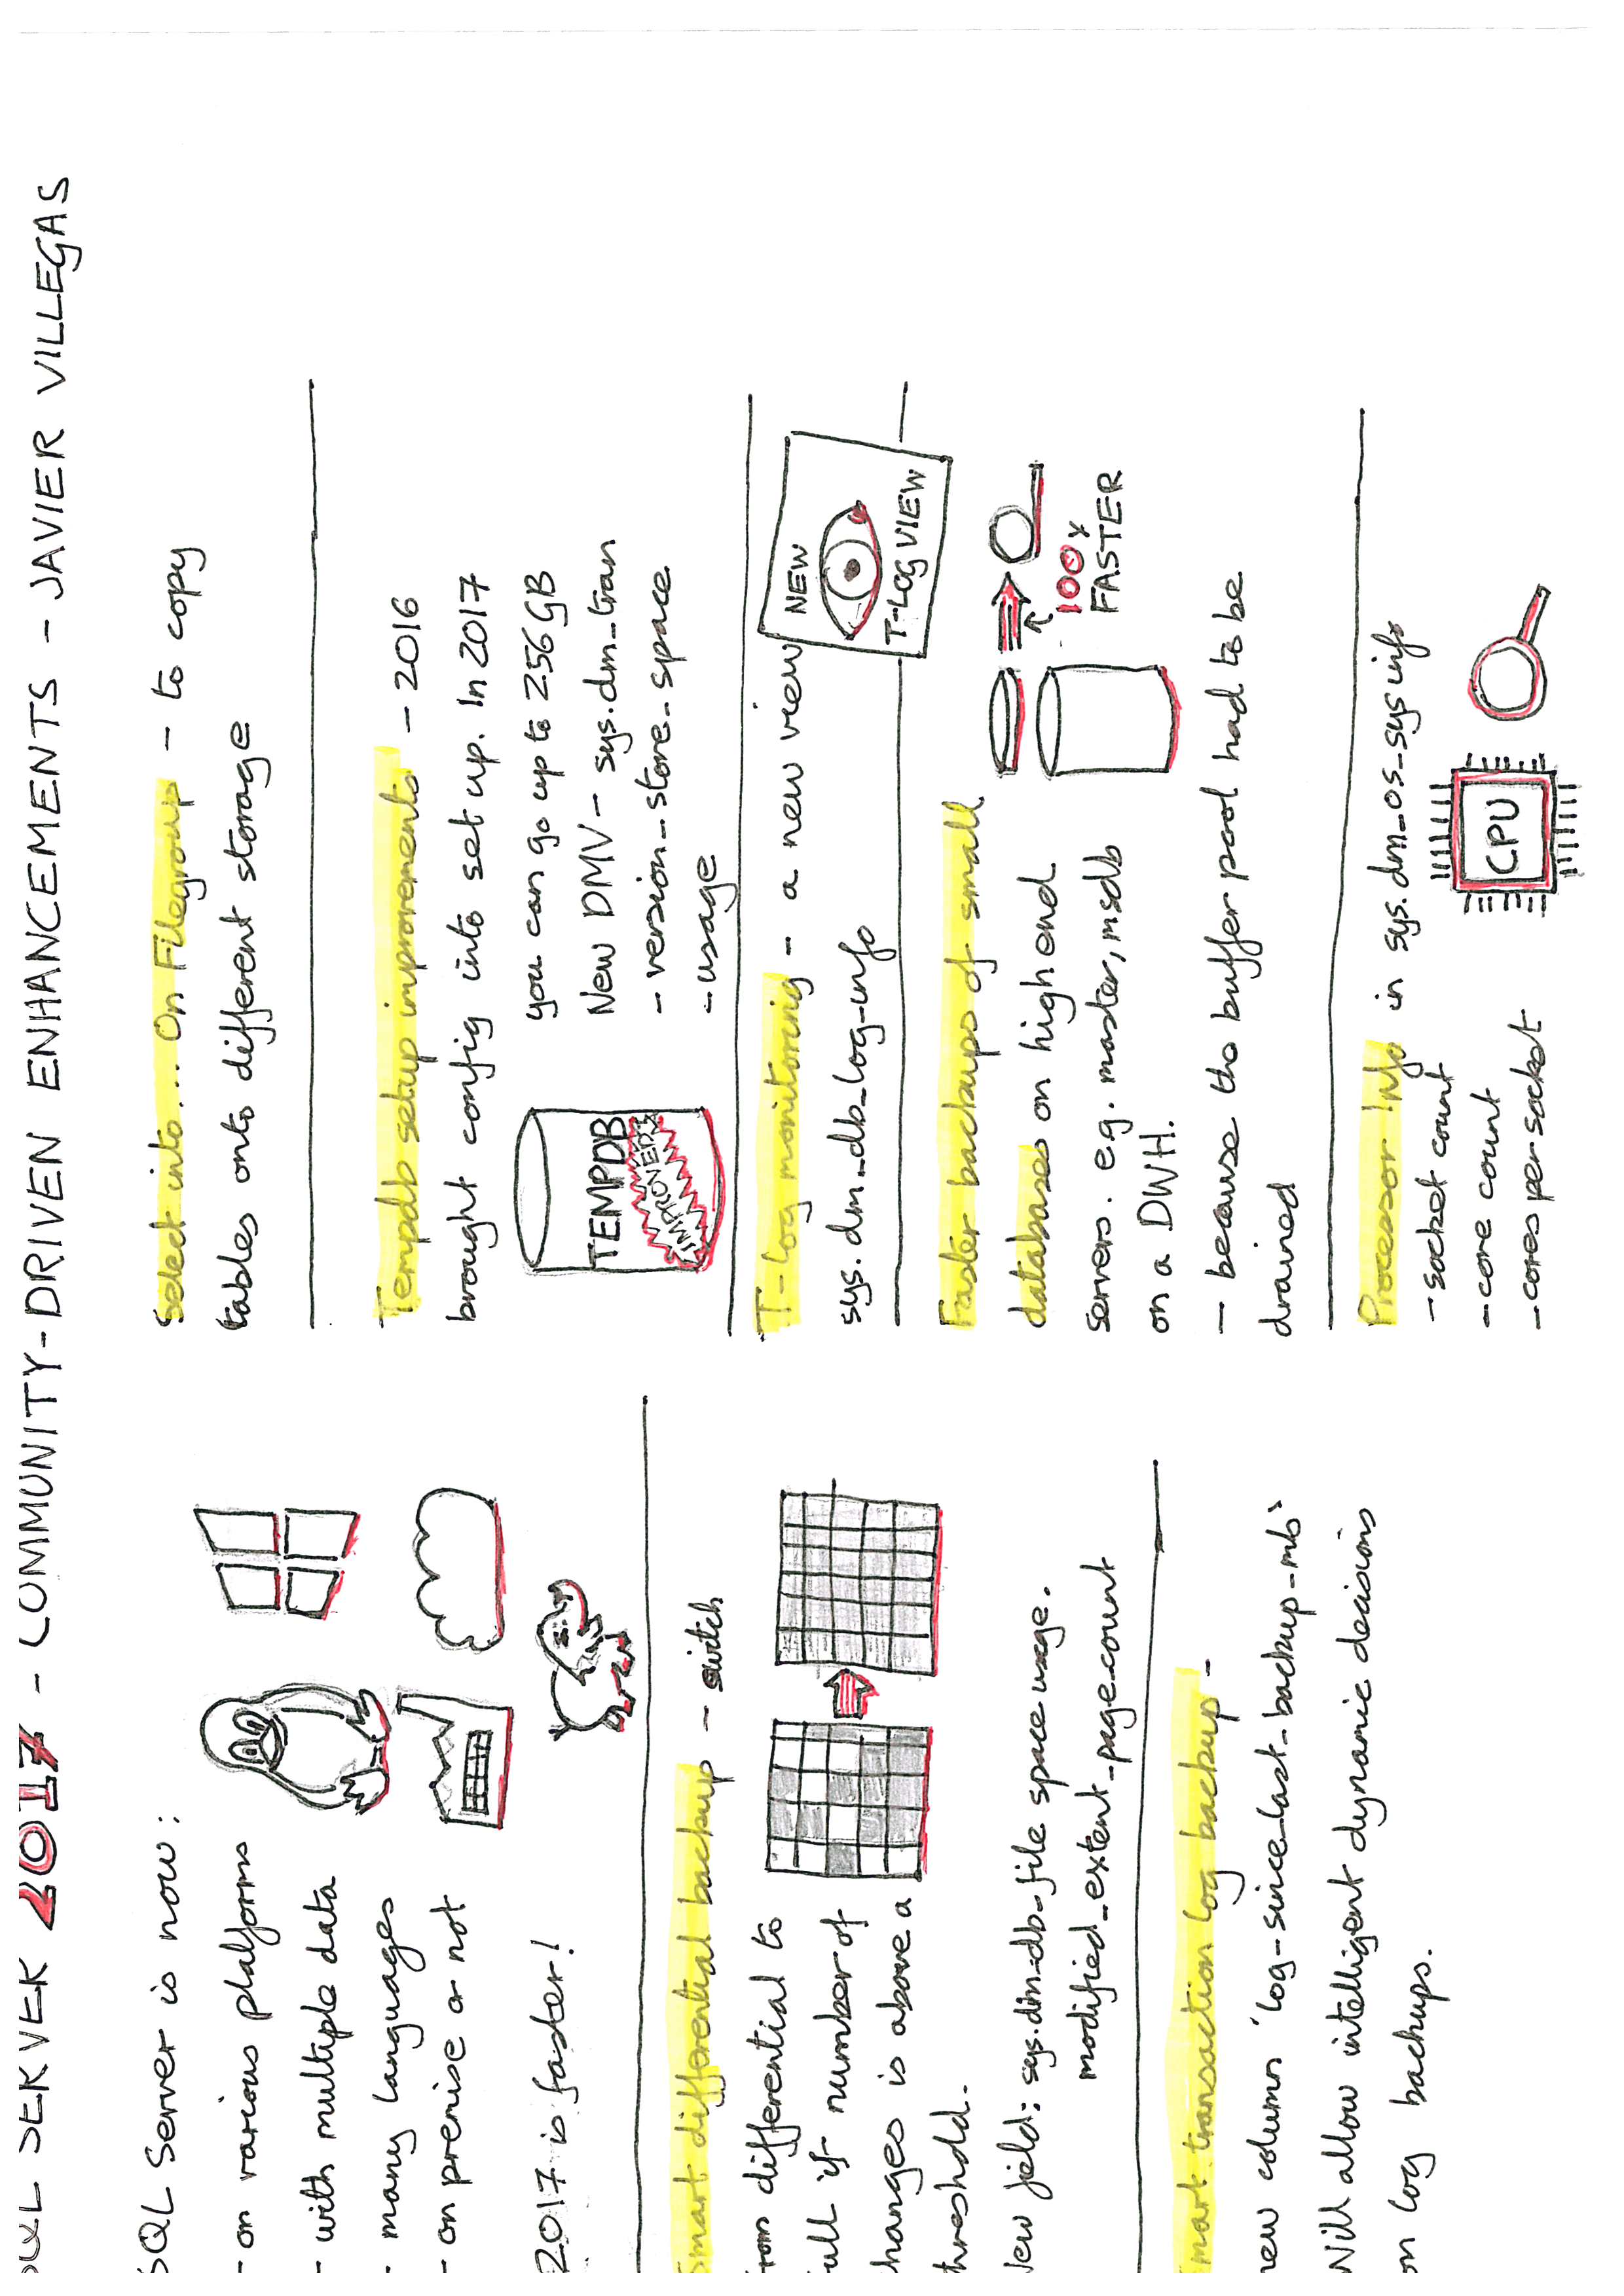 SQL SERVER 2017 - COMMUNITY-DRIVEN ENHANCEMENTS - JAVIER VILLEGAS
SQL Server is now:
- on various platforms
- with multiple data
- many languages
- on premise or not
2017 is faster!
Smart differential backup - switch
from differential to
full if number of
changes is above a
threshold.
New field: sys.dm_db_file space usage.
modified_extent_page_count
Smart transaction log backup -
new column 'log-since_last_backup_mb'
Will allow intelligent dynamic decisions
on log backups.
Select into... On Filegroup - to copy
tables onto different storage
Tempdb setup improvements - 2016
brought config into set up. In 2017
you can go up to 256GB
New DMV - sys.dm_tran
- version_store_space
- usage
TEMPDB
IMPROVED!
T-Log monitoring - a new view
sys.dm_db_log_info
NEW
T-LOG VIEW
Faster backups of small
databases on high end
servers. e.g. master, msdb
on a DWH.
- because the buffer pool had to be
drained
100x
FASTER
Processor Info in sys.dm_os_sys info
- socket count
- core count
- cores per socket
CPU